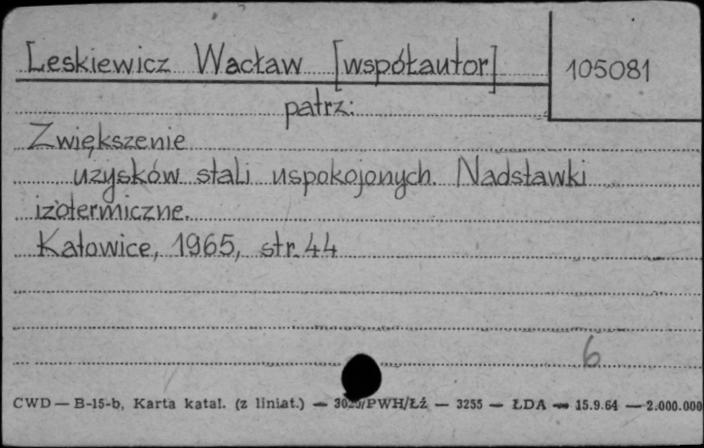 Leskiewicz Wacław [współautor]
105081
patrz:
Zwiększenie
uzysków stali uspokojonych. Nadstawki
izotermiczne.
Katowice, 1965, str. 44
6
CWD — B-15-b, Karta katal. (z liniat.) — /PWH/ŁŹ — 3255 — ŁDA — 15.9.64 — 2.000.000